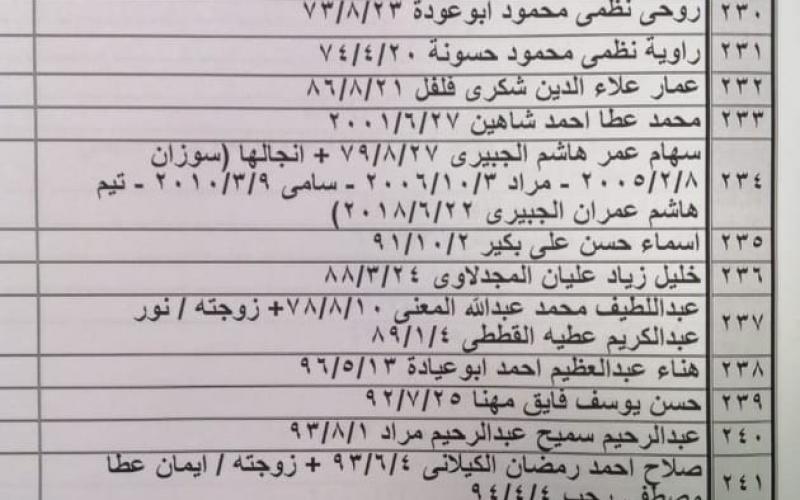 ٢٣٠ روحى نظمى محمود ابوعودة ٧٣/٨/٢٣
٢٣١ راوية نظمى محمود حسونة ٧٤/٤/٢٠
٢٣٢ عمار علاء الدين شكرى فلفل ٨٦/٨/٢١
٢٣٣ محمد عطا احمد شاهين ٢٠٠١/٦/٢٧
سهام عمر هاشم الجبيرى ٧٩/٨/٢٧ + انجالها (سوزان
٢٣٤ ٢٠٠٥/٢/٨ - مراد ٢٠٠٦/١٠/٣ - سامى ٢٠١٠/٣/٩ - تيم
هاشم عمران الجبيرى ٢٠١٨/٦/٢٢)
٢٣٥ اسماء حسن على بكير ٩١/١٠/٢
٢٣٦ خليل زياد عليان المجدلاوى ٨٨/٣/٢٤
٢٣٧ عبداللطيف محمد عبدالله المعنى ٧٨/٨/١٠+ زوجته / نور
عبدالكريم عطيه القططى ٨٩/١/٤
٢٣٨ هناء عبدالعظيم احمد ابوعيادة ٩٦/٥/١٣
٢٣٩ حسن يوسف فايق مهنا ٩٢/٧/٢٥
٢٤٠ عبدالرحيم سميح عبدالرحيم مراد ٩٣/٨/١
٢٤١ صلاح احمد رمضان الكيلانى ٩٣/٦/٤ + زوجته / ايمان عطا
مصطفى رجب ٩٤/٤/٤